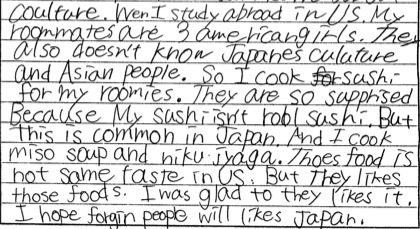 coulture. Wen I study abroad in US. My
roommates are 3 american girls. They
also doesn't know Japanes culuture
and Asian people. So I cook for sushi
for my roomies. They are so supprised
Because My sushi isn't robl sushi. But
this is common in Japan. And I cook
miso soup and niku-jyaga. Thoes food is
not same taste in US. But They likes
those foods. I was glad to they likes it.
I hope forgin people will likes Japan.